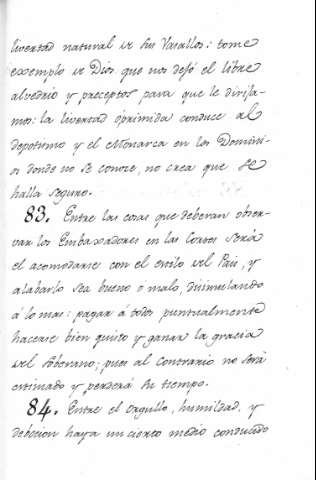 livertad natural de sus Vasallos: tome
exemplo de Dios que nos dejó el libre
alvedrio y preceptos para que le divisa-
mos: la livertad oprimida conduce al
depotismo y el Monarca en los Domini-
os donde no se conoce, no crea que se
halla seguro.
83. Entre las cosas que deberan obser-
var los Embaxadores en las Cortes será
el acomodarse con el estilo del Pais, y
alabarlo sea bueno o malo, disimulando
á lo mas: pagar á todos puntualmente
hacerse bien quisto y ganar la gracia
del Soberano; pues al contrario no será
estimado y perderá su tiempo.
84. Entre el orgullo, humildad, y
debocion haya un cierto medio conducido